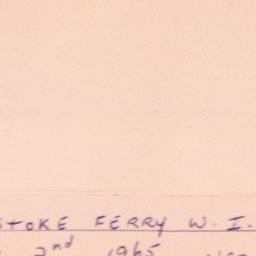 STOKE FERRY W. I.
2nd 1965